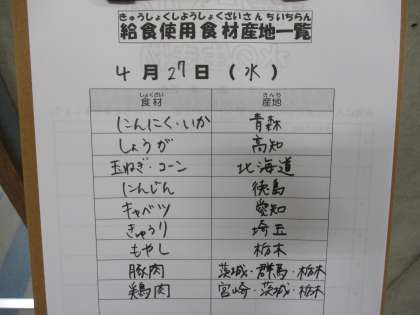 きゅうしょくしようしょくざいさんちいちらん
給食使用食材産地一覧
4月27日(水)
しょくざい さんち
食材 産地
にんにく・いか 青森
しょうが 高知
玉ねぎ・コーン 北海道
にんじん 徳島
キャベツ 愛知
きゅうり 埼玉
もやし 栃木
豚肉 茨城・群馬・栃木
鶏肉 宮崎・茨城・栃木